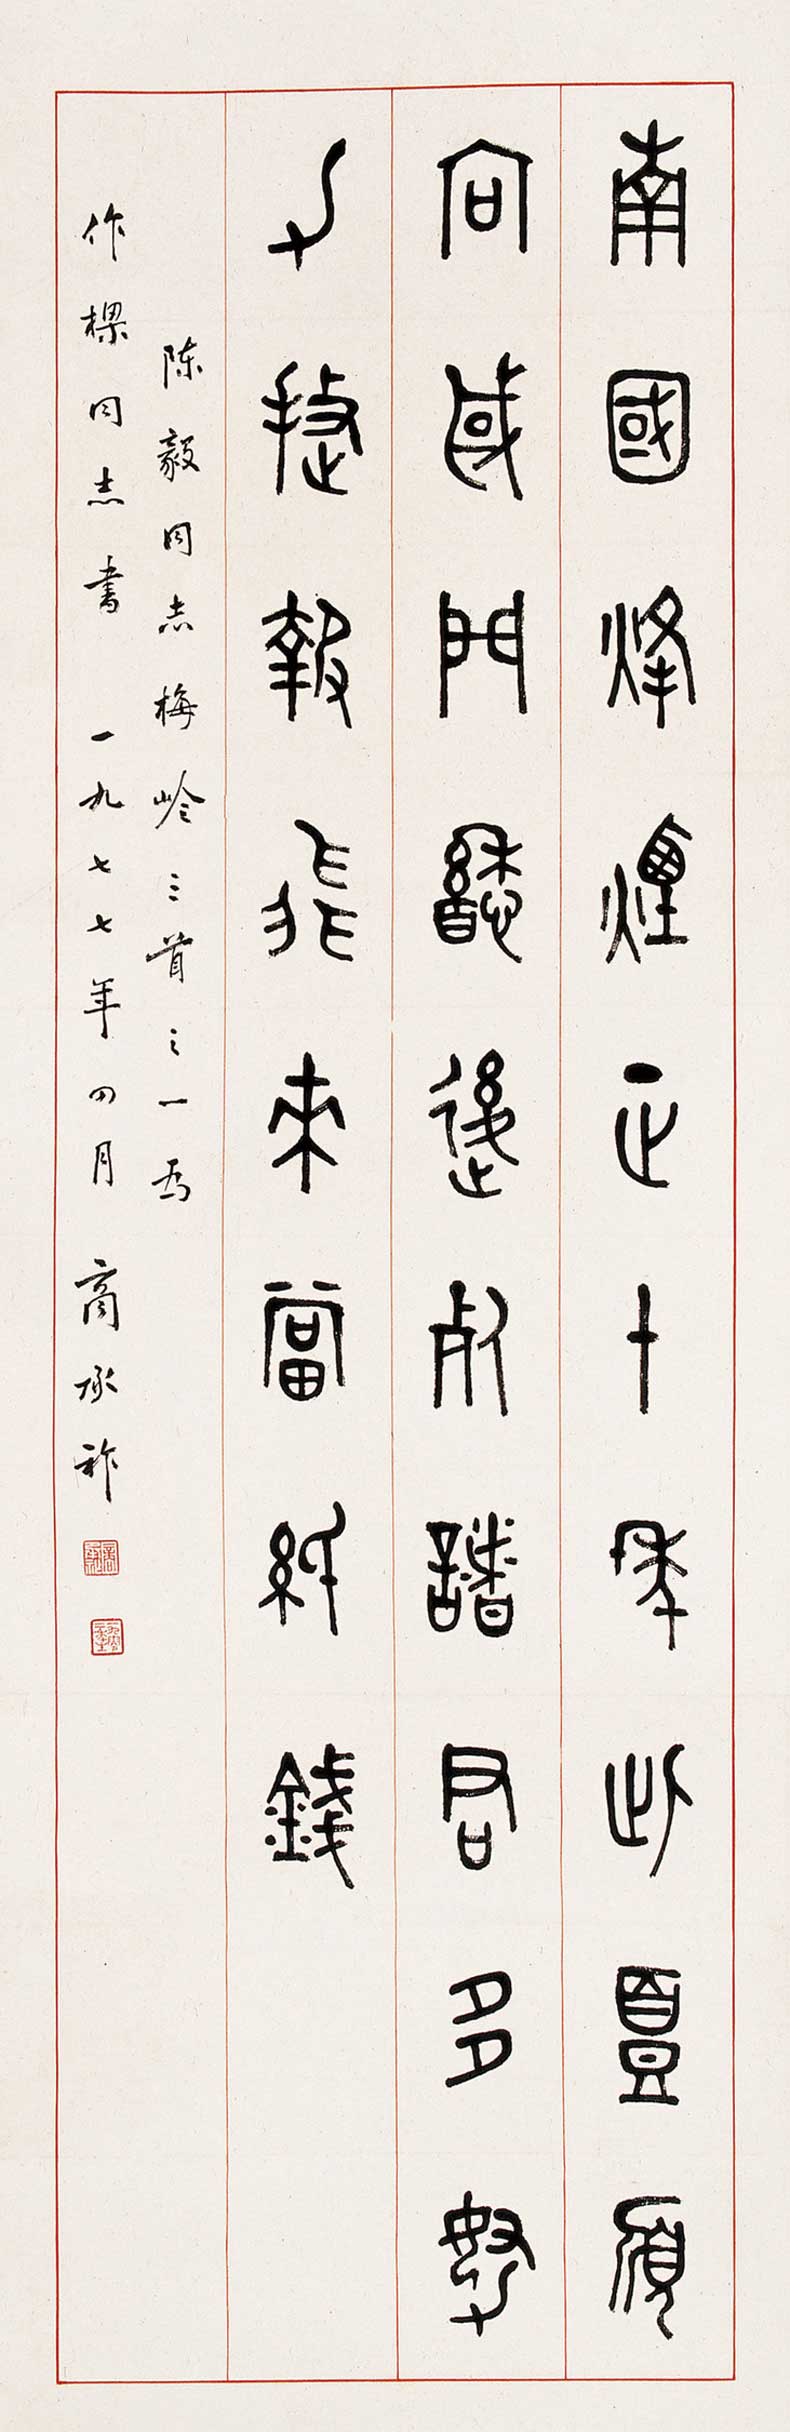 南國烽煙正十年此頭須
向國門懸後死諸君多努
力捷報飛來當紙錢
陈毅同志梅岭三首之一为
作樑同志书 一九七七年四月 商承祚